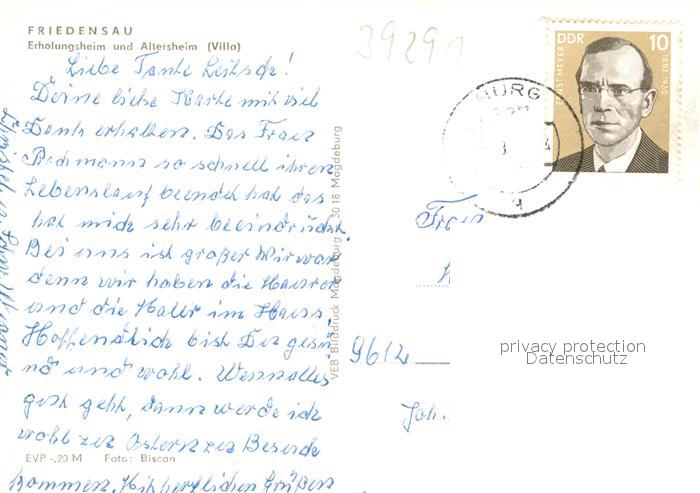 FRIEDENSAU
Erholungsheim und Altersheim (Villa)
Liebe Tante
Deine liebe Karte mit viel
Dank erhalten. Das Frau
Bachmann so schnell ihren
Lebenslauf beendet hat das
hat mich sehr beeindruckt.
Bei uns ist großer Wirwar
denn wir haben die Maurer
und die Maler im Haus.
Hoffendlich bist Du gesu
nd und wohl. Wenn alles
gut geht, dann werde ich
wohl zu Ostern zu Besuch
kommen. Mit herzlichen Grüßen
EVP -,20 M Foto: Biscan
VEB Bilddruck Magdeburg 3018 Magdeburg
39291
DDR 10
ERNST MEYER 1887-1930
BURG
Frau
9612
Joh.
privacy protection
Datenschutz